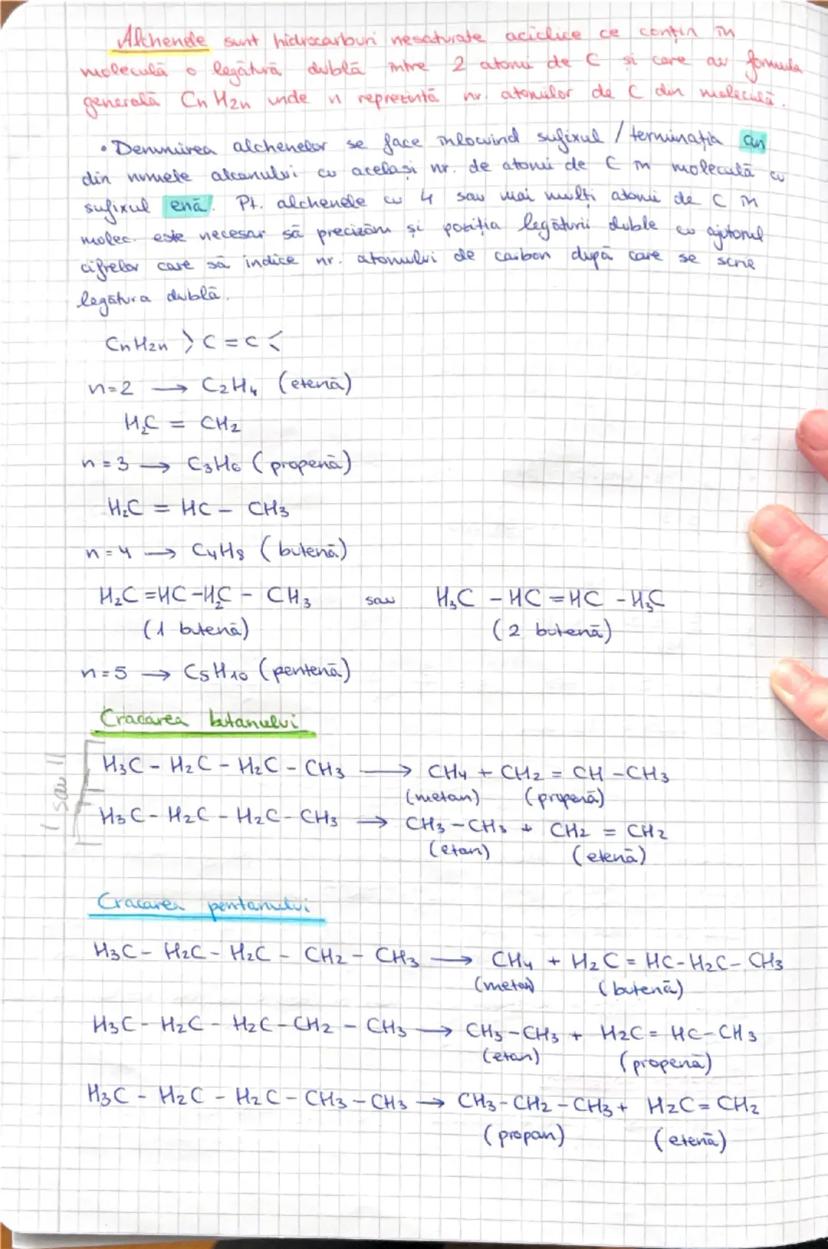 Alchenele sunt hidrocarburi nesaturate aciclice ce conțin în
moleculă o legătură dublă între 2 atomi de C și care au formula
generală CnH2n unde n reprezintă nr. atomilor de C din moleculă.
• Denumirea alchenelor se face înlocuind sufixul / terminația an
din numele alcanului cu același nr. de atomi de C în moleculă cu
sufixul enă. Pt. alchenele cu 4 sau mai mulți atomi de C în
molec. este necesar să precizăm și poziția legăturii duble cu ajutorul
cifrelor care să indice nr. atomului de carbon după care se scrie
legătura dublă.
CnH2n >C = C<
n=2 → C2H4 (etenă)
H2C = CH2
n=3 → C3H6 (propenă)
H2C = HC – CH3
n=4 → C4H8 (butenă)
H2C =HC-H2C – CH3 sau H3C – HC =HC – H3C
(1 butenă) (2 butenă)
n=5 → C5H10 (pentenă)
Cracarea butanului
I sau II
H3C – H2C – H2C – CH3 → CH4 + CH2 = CH – CH3
(metan) (propenă)
H3C – H2C – H2C – CH3 → CH3 – CH3 + CH2 = CH2
(etan) (etenă)
Cracarea pentanului
H3C – H2C – H2C – CH2 – CH3 → CH4 + H2C = HC-H2C – CH3
(metan) (butenă)
H3C – H2C – H2C – CH2 – CH3 → CH3 – CH3 + H2C = HC – CH3
(etan) (propenă)
H3C – H2C – H2C – CH3 – CH3 → CH3 – CH2 – CH3 + H2C = CH2
(propan) (etenă)